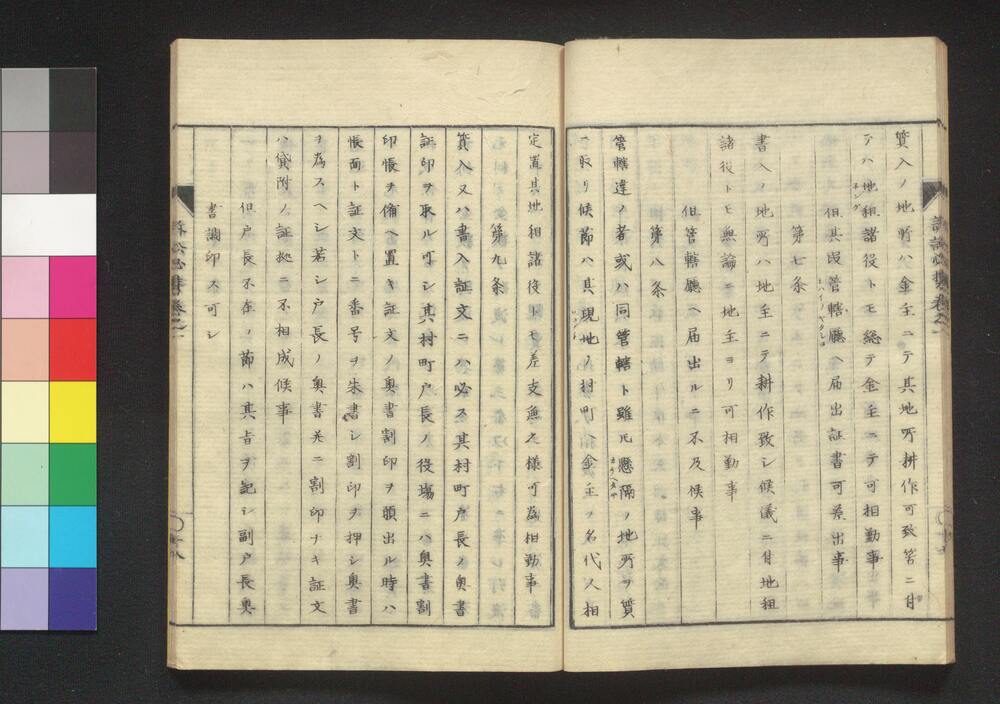 質入ノ地所ハ金主ニテ其地所耕作可致筈ニ付
テハ地租諸役トモ総テ金主ニテ可相勤事
但其段管轄廳ヘ届出証書可差出事
第七条
書入ノ地所ハ地主ニテ耕作致シ候儀ニ付地租
諸役トモ無論ニ地主ヨリ可相勤事
但管轄廳ヘ届出ルニ不及候事
第八条
管轄違ノ者或ハ同管轄ト雖𪜈懸隔ノ地所ヲ質
ニ取リ候節ハ其現地ノ村町ヘ金主ノ名代人相
定置其地租諸役トモ差支無之様可為相勤事
第九条
質入又ハ書入証文ニハ必ス其村町戸長ノ奥書
証印ヲ取ル可シ其村町戸長ノ役場ニハ奥書割
印帳ヲ備ヘ置キ証文ノ奥書割印ヲ願出ル時ハ
帳面ト証文トニ番号ヲ朱書シ割印ヲ押シ奥書
ヲ為スヘシ若シ戸長ノ奥書並ニ割印ナキ証文
ハ貸附ノ証拠ニ不相成候事
但戸長不在ノ節ハ其旨ヲ記シ副戸長奥
書調印ス可シ